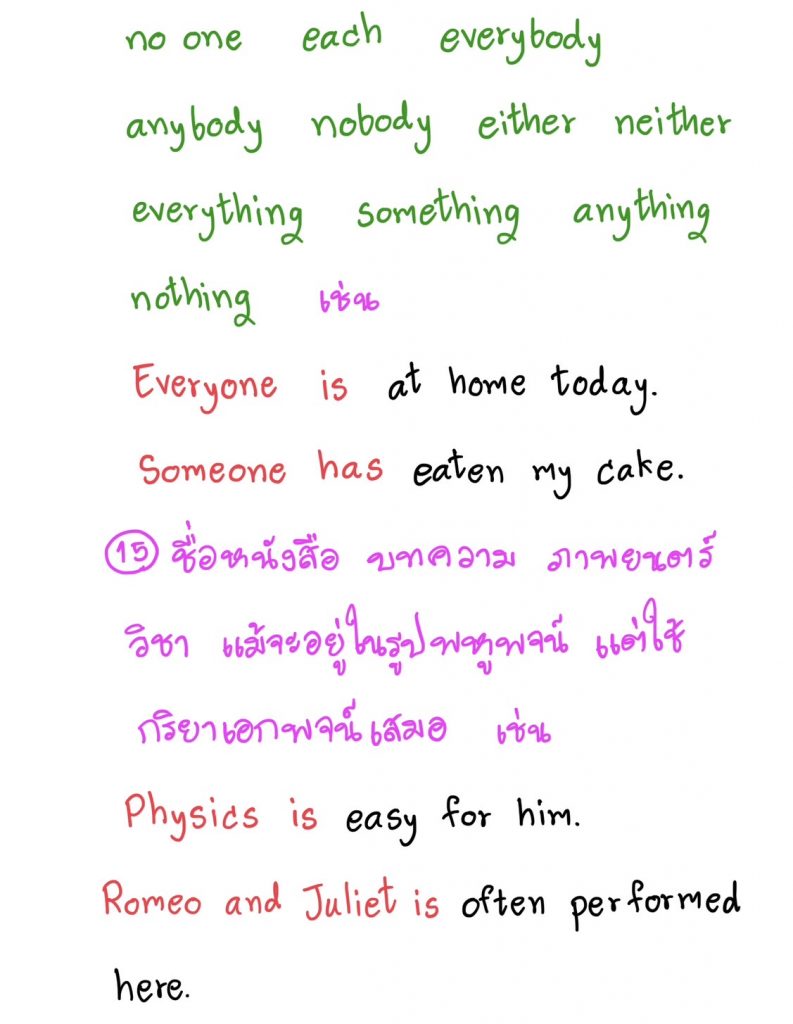 no one each everybody
anybody nobody either neither
everything something anything
nothing เช่น
Everyone is at home today.
Someone has eaten my cake.
15 ชื่อหนังสือ บทความ ภาพยนตร์
วิชา แม้จะอยู่ในรูปพหูพจน์ แต่ใช้
กริยาเอกพจน์เสมอ เช่น
Physics is easy for him.
Romeo and Juliet is often performed
here.